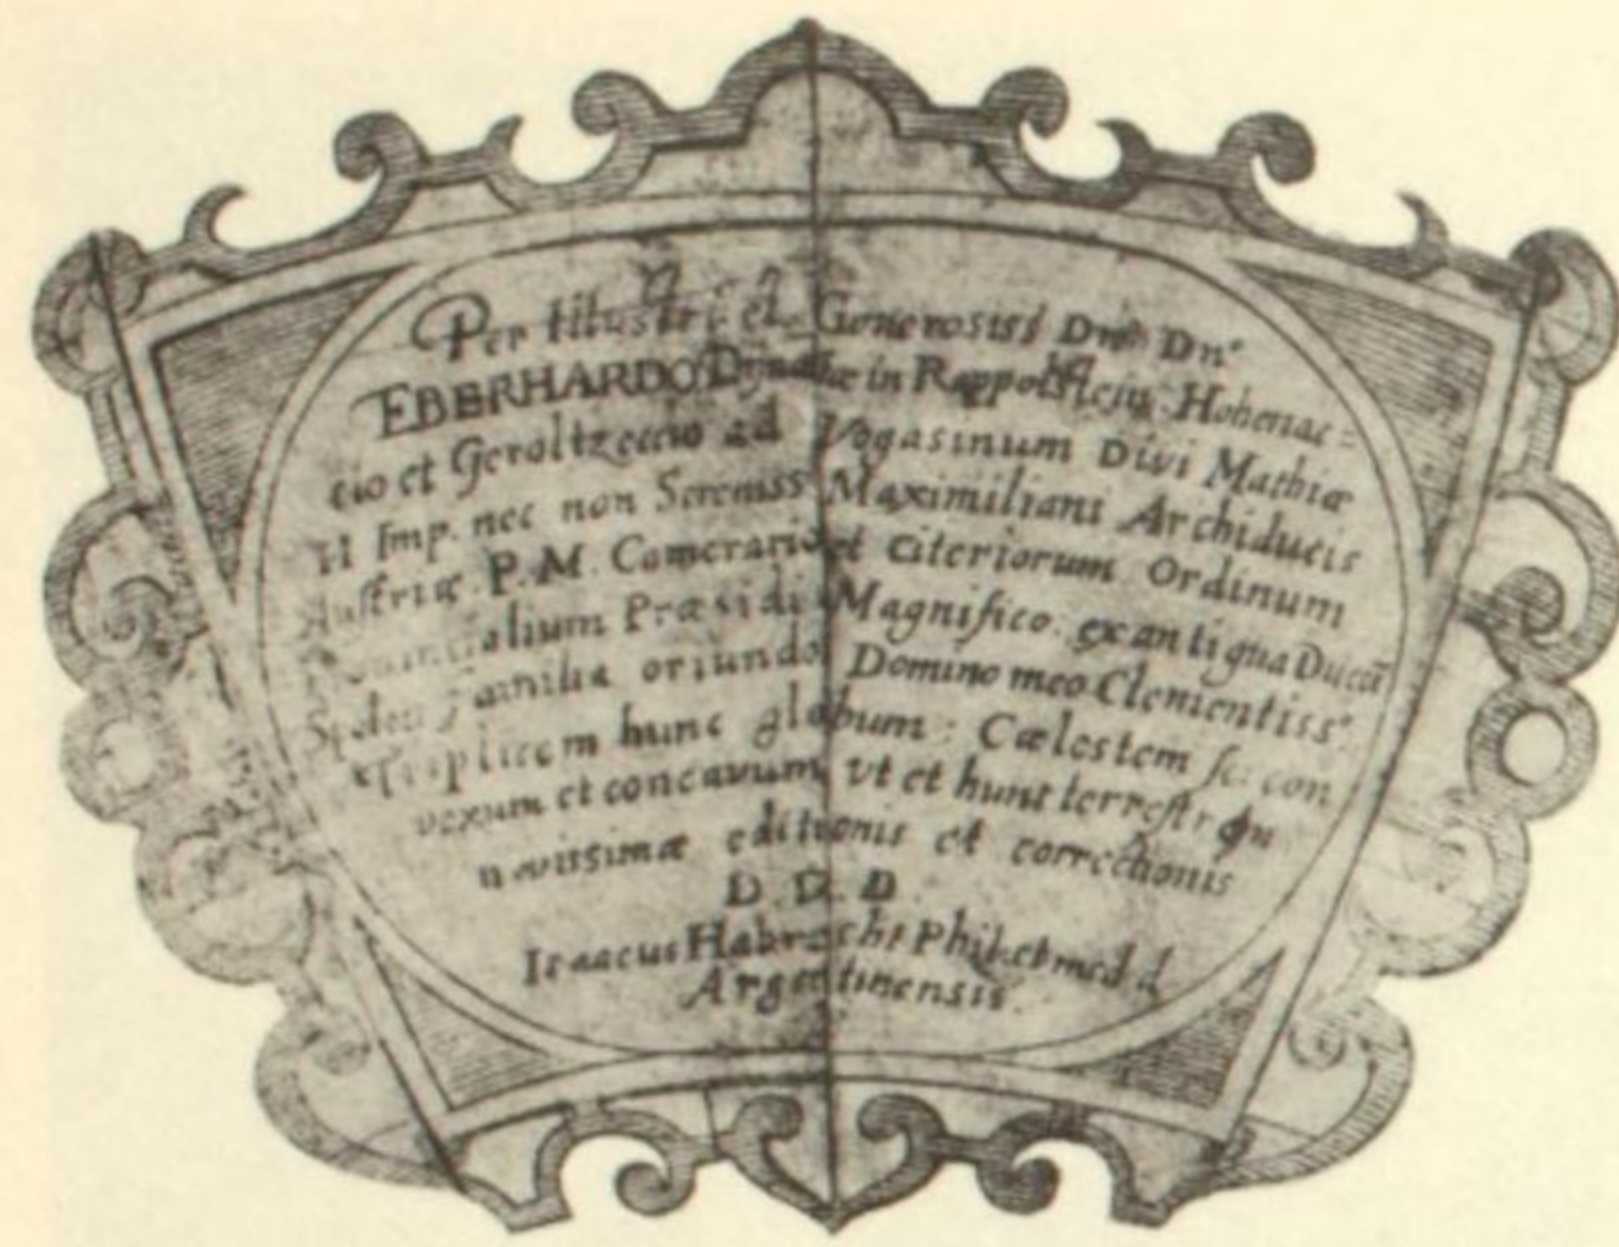 Per Illustri et Generosiss Dno Dno
EBERHARDO Dynastæ in Rappolstein Hohenac=
cio et Geroltzeccio ad Vogasinum Divi Mathiæ
II Imp. nec non Sereniss Maximiliani Archiducis
Austriæ. P.M. Camerario et citeriorum Ordinum
Provincialium Præsidi Magnifico. ex antiqua Ducū
Familia oriundo Domino meo Clementiss:
Triplicem hunc globum: Cælestem sc: con
vexum et concavum, vt et hunc terrestrem
novissimæ editionis et correctionis
D. D. D
Isaacus Habrecht Phil. et med. d
Argentinensis.